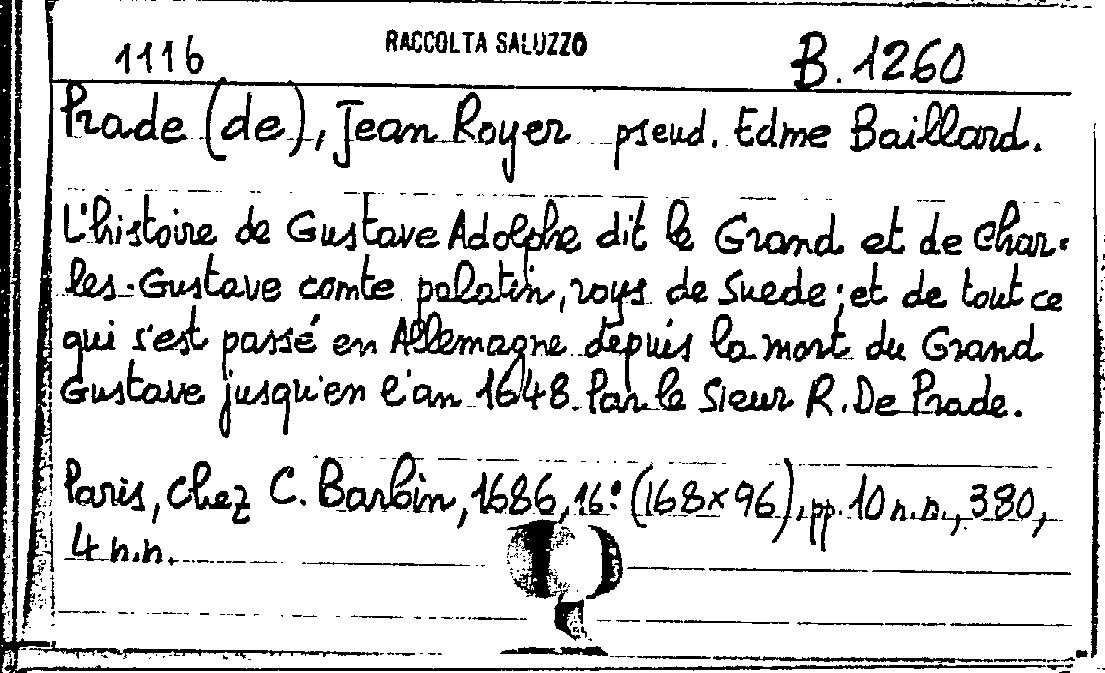 1116 RACCOLTA SALUZZO B. 1260
Prade (de), Jean Royer pseud. Edme Baillard.
L'histoire de Gustave Adolphe dit le Grand et de Char-
les-Gustave comte palatin, roys de Suede; et de tout ce
qui s'est passé en Allemagne depuis la mort du Grand
Gustave jusqu'en l'an 1648. Par le Sieur R. De Prade.
Paris, chez C. Barbin, 1686, 16° (168×96), pp. 10 n.n., 380,
4 n.n.